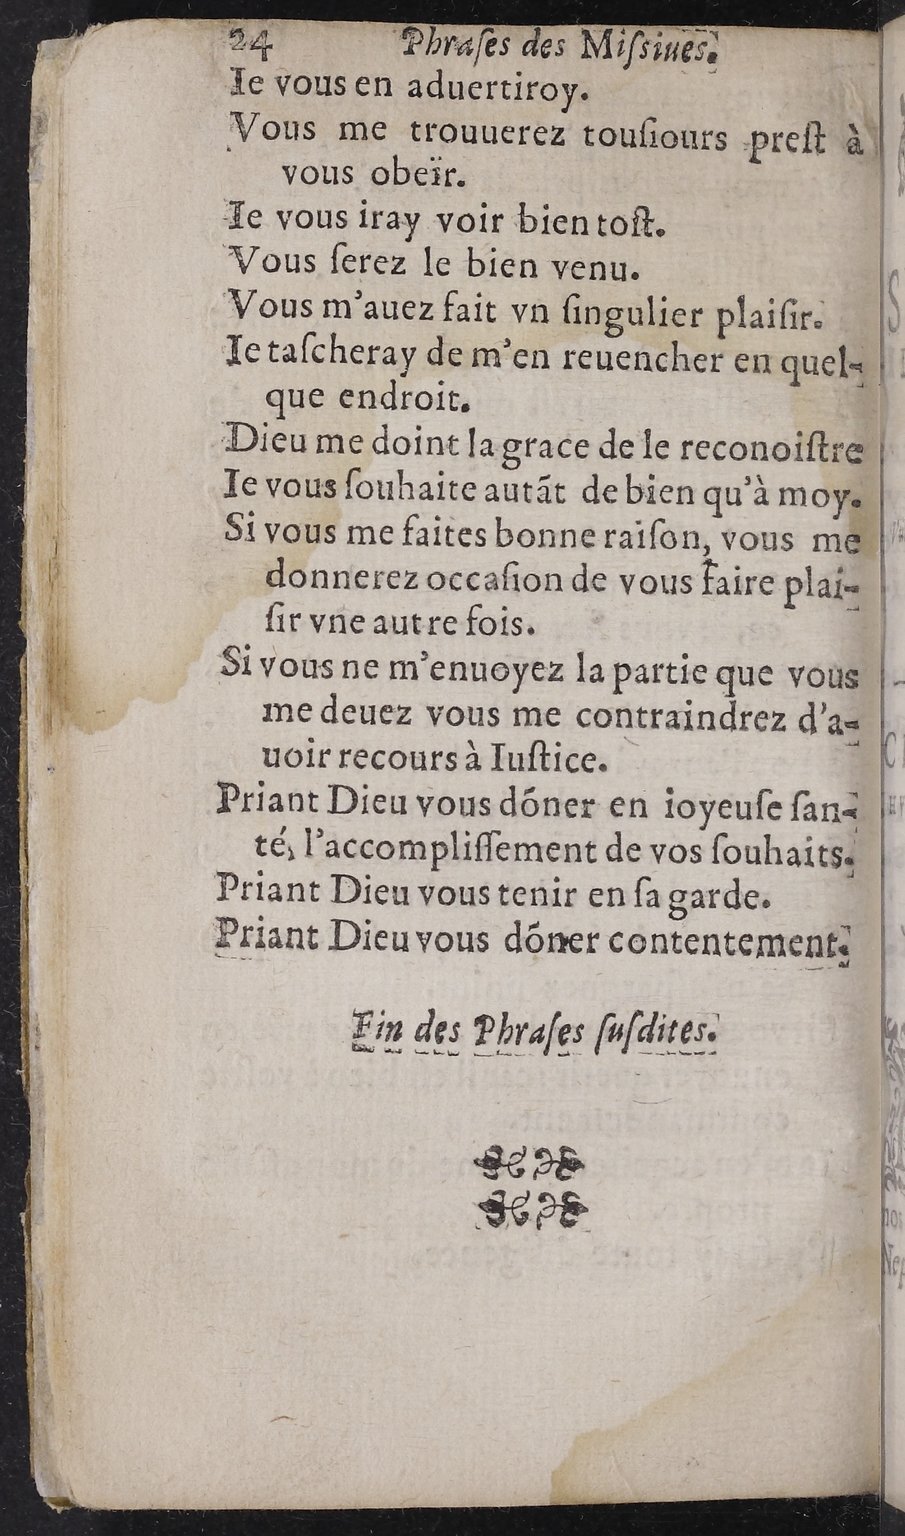 24 Phraſes des Miſsiues.
Ie vous en aduertiroy.
Vous me trouuerez touſiours preſt à
vous obeïr.
Ie vous iray voir bien toſt.
Vous ſerez le bien venu.
Vous m'auez fait vn ſingulier plaiſir.
Ie taſcheray de m'en reuencher en quel-
que endroit.
Dieu me doint la grace de le reconoiſtre
Ie vous ſouhaite autãt de bien qu'à moy.
Si vous me faites bonne raiſon, vous me
donnerez occaſion de vous faire plai-
ſir vne autre fois.
Si vous ne m'enuoyez la partie que vous
me deuez vous me contraindrez d'a-
uoir recours à Iuſtice.
Priant Dieu vous dóner en ioyeuſe ſan-
té, l'accompliſſement de vos ſouhaits.
Priant Dieu vous tenir en ſa garde.
Priant Dieu vous dóner contentement.
Fin des Phraſes ſuſdites.